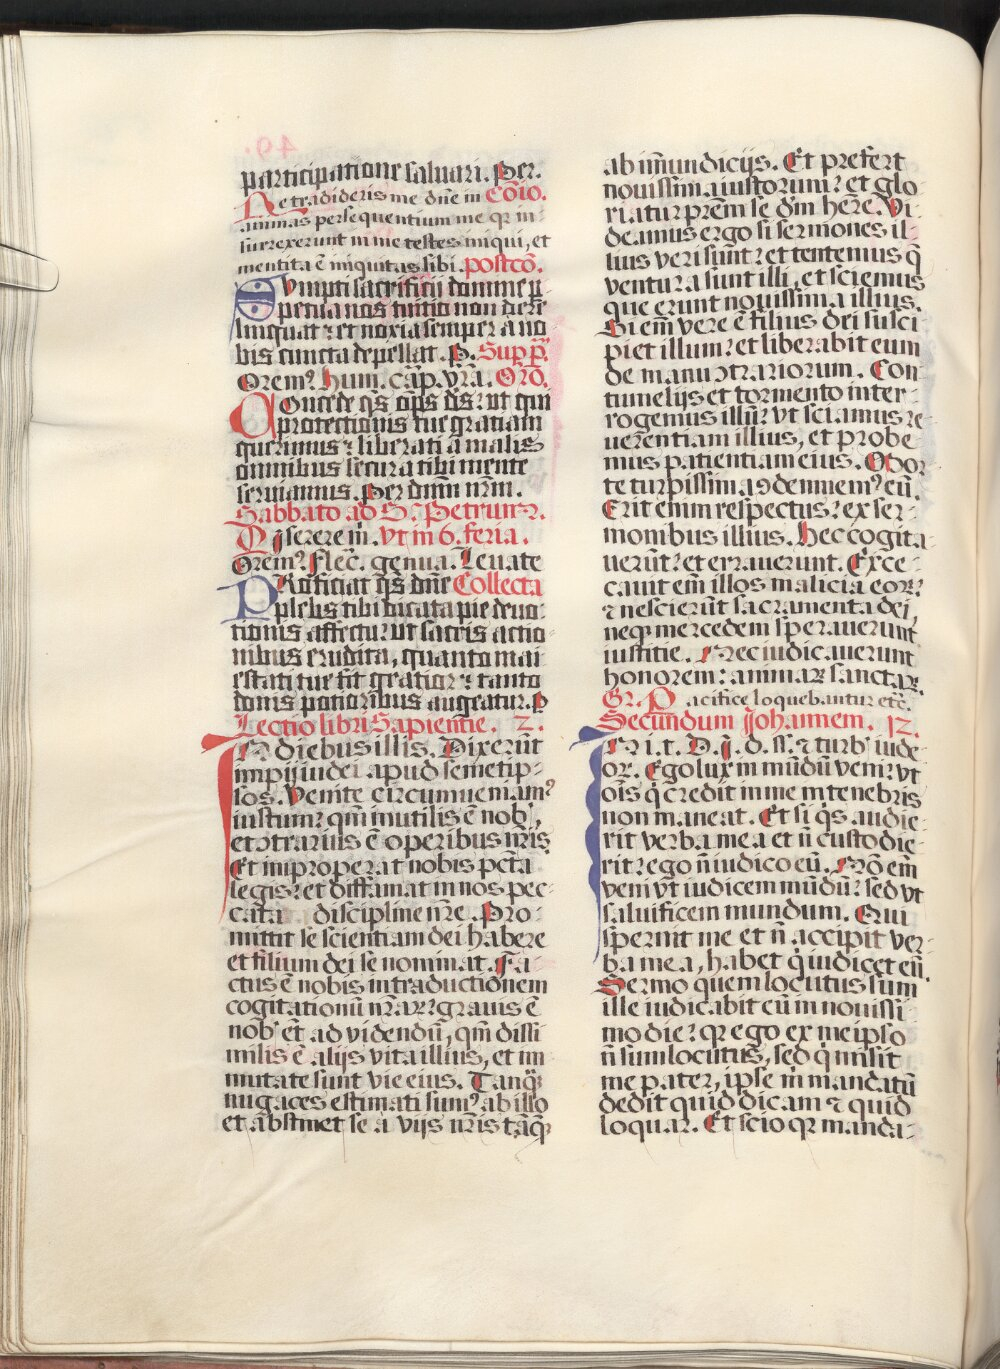 participatione saluari. Per.
Ne tradideris me dn̄e in Cōio.
animas persequentium me qꝛ in-
surrexerunt in me testes iniqui, et
mentita ē iniquitas sibi. postcō.
Sumpti sacrificij domine ꝑ-
petua nos tuitio non dere-
linquat: et noxia semper a no-
bis cuncta depellat. P. Sup pp̄.
Oremꝰ hum. cap. vrā. Orō.
Concede q̄s om̄ps ds: ut qui
protectionis tue gratiam
querimus: liberati a malis
omnibus secura tibi mente
seruiamus. Per dn̄m nr̄m.
Sabbato ad S. Petrum.
Miserere m̄. vt in 6. feria.
Oremꝰ flec̄. genua. Leuate
Proficiat q̄s dn̄e Collecta
plebs tibi dicata pie deuo-
tionis affectu: ut sacris actio-
nibus erudita, quanto mai-
estati tue fit gratior: tanto
donis potioribus augeatur. P
Lectio libri Sapientie. 2.
In diebus illis. Dixerūt
impij iudei apud semetip-
sos. Venite circumueniamꝰ
iustum: qm̄ inutilis ē nobꝭ,
et ↄtrarius ē operibus nr̄is
Et improperat nobis pctā
legis: et diffamat in nos pec-
cata discipline nr̄e. Pro-
mittit se scientiam dei habere
et filium dei se nominat. Fa-
ctus ē nobis in traductionem
cogitationū nr̄aꝝ: grauis ē
nobꝭ et̄ ad videndū, qm̄ dissi-
milis ē alijs vita illius, et im-
mutate sunt vie eius. Tanq̄
nugaces estimati sumꝰ ab illo
et abstinet se a vijs nr̄is tāq̄
ab īmundicijs. Et prefert
nouissima iustorum: et glo-
riatur prēm se dm̄ hēre. Vi-
deamus ergo si sermones il-
lius veri sunt: et tentemus q̄
ventura sunt illi, et sciemus
que erunt nouissima illius.
Si em̄ vere ē filius dei susci-
piet illum: et liberabit eum
de manu ↄtrariorum. Con-
tumelijs et tormento inter-
rogemus illū: vt sciamus re-
uerentiam illius, et probe-
mus patientiam eius. Mor-
te turpissima ꝯdemnemꝰ eū.
Erit enim respectus: ex ser-
monibus illius. Hec cogita-
uerūt: et errauerunt. Exce-
cauit em̄ illos malicia eoꝝ:
⁊ nescierūt sacramenta dei,
neqꝫ mercedem sperauerunt
iustitie. Nec iudicauerunt
honorem: animaꝝ sanctaꝝ.
Gr. Pacifice loquebantur etc̄.
Secundum Johannem. 12.
In i. t. D. ij. d. ss. ⁊ turbꝭ iude-
oꝝ. Ego lux in mūdū veni: vt
oīs q̇ credit in me in tenebris
non maneat. Et si q̇s audie-
rit verba mea et n̄ custodie-
rit: ego n̄ iudico eū. Nō em̄
veni vt iudicem mūdū: sed vt
saluificem mundum. Qui
spernit me et n̄ accipit ver-
ba mea, habet q̇ iudicet eū.
Sermo quem locutus sum
ille iudicabit eū in nouissi-
mo die: qꝛ ego ex meipso
n̄ sum locutus, sed q̇ misit
me pater, ipse m̄ mandatū
dedit quid dicam ⁊ quid
loquar. Et scio qꝛ manda-